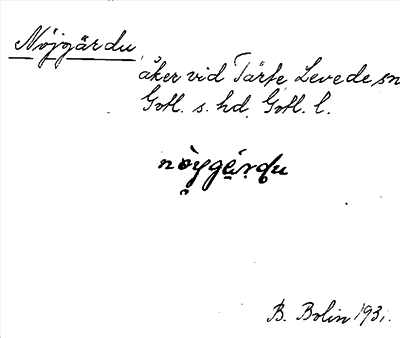 Nöjgärdu
åker vid Tärfe, Levede sn
Gotl. s. hd. Gotl. l.
nöygärdu
B. Bolin 1931.